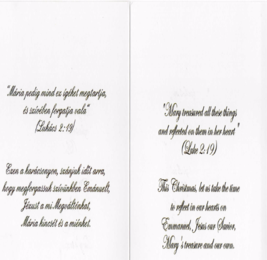 "Mária pedig mind ez igéket megtartja,
és szívében forgatja vala"
(Lukács 2:19)
Ezen a karácsonyon, szánjuk időt arra,
hogy megforgassuk szívünkben Emánuelt,
Jézust a mi Megváltónkat,
Mária kincsét és a miénket.
"Mary treasured all these things
and reflected on them in her heart"
(Luke 2:19)
This Christmas, let us take the time
to reflect in our hearts on
Emmanuel, Jesus our Savior,
Mary's treasure and our own.